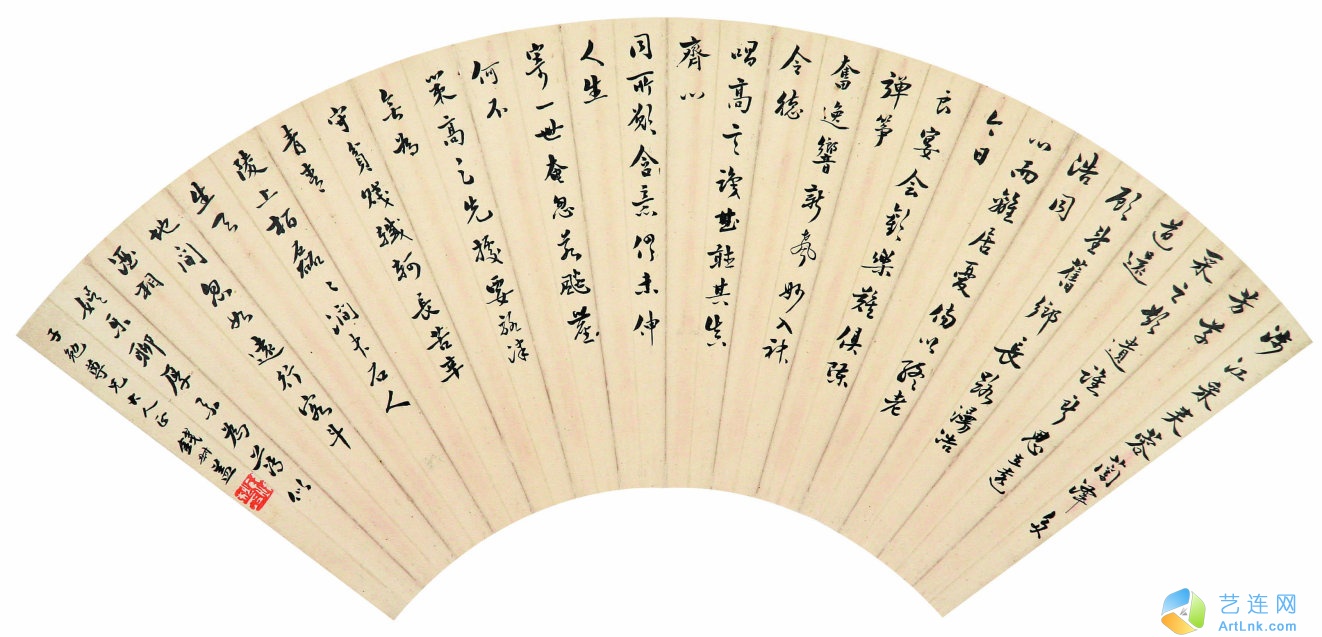 涉江采芙蓉蘭澤多
芳草
采之欲遺誰所思在遠
道還
顧望舊鄉長路漫浩
浩同
心而離居憂傷以終老
今日
良宴會歡樂難俱陳
彈箏
奮逸響新聲妙入神
令德
唱高言識曲聽其真
齊心
同所願含意俱未伸
人生
寄一世奄忽若飈塵
何不
策高足先據要路津
無為
守貧賤轗軻長苦辛
青青
陵上柏磊〻澗中石人
生天
地間忽如遠行客斗
酒相
娛樂聊厚不為薄似
子勉尊兄大人正 錢益
艺连网
ArtLnk.com